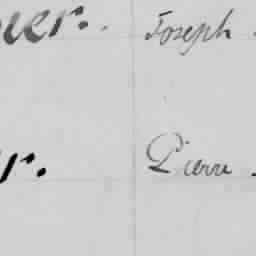 ier. Joseph
r. Pierre